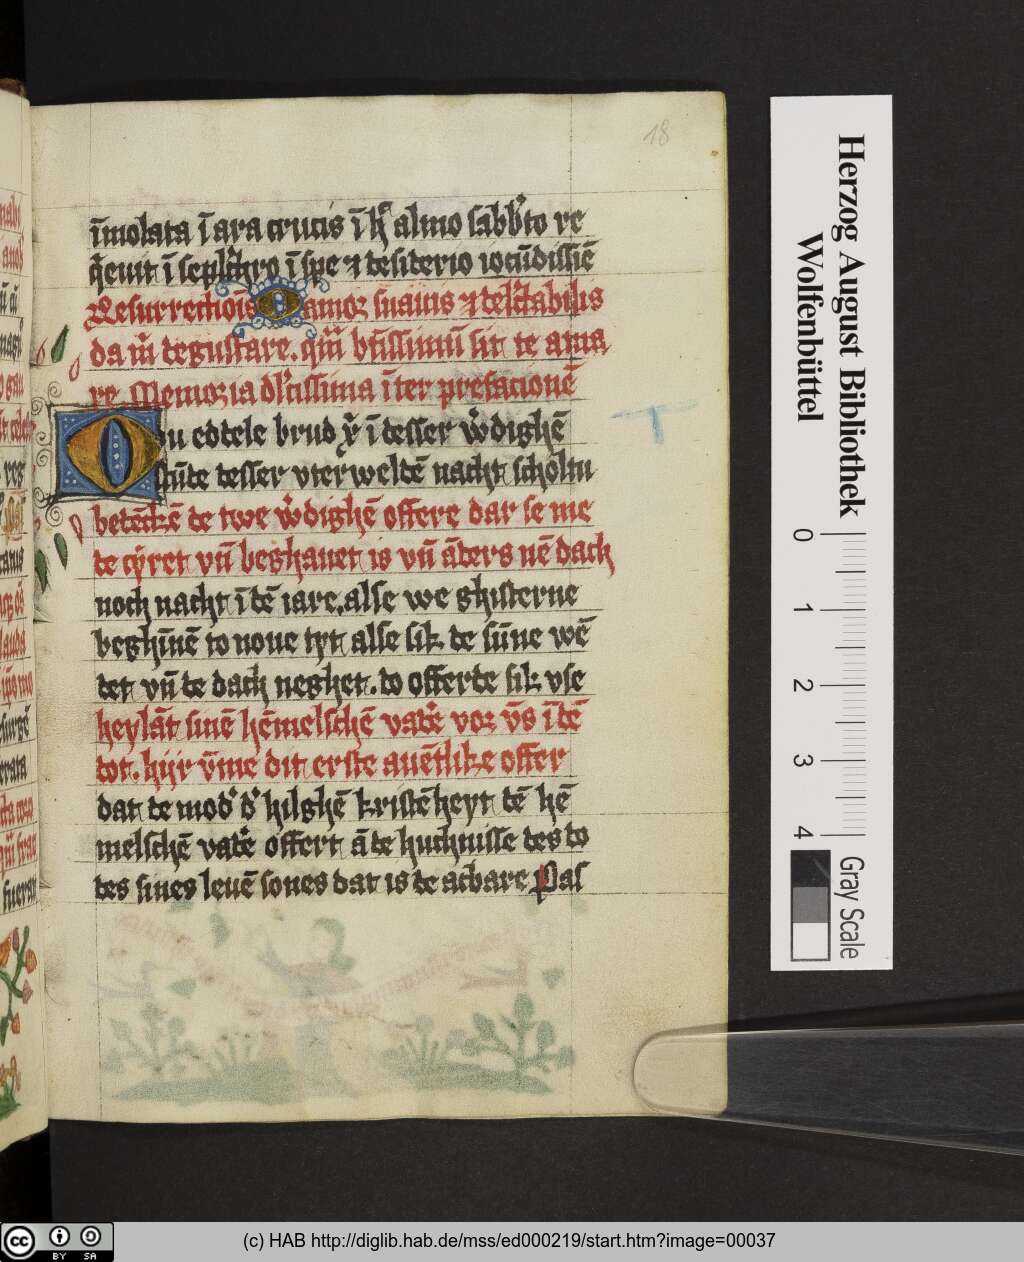 18
īmolata ī ara crucis ī h° almo sabb'to re
q̄euit ī sepl'chro ī spe ⁊ desiderio iocūdissiē
Resurrectiōis O amor suauis ⁊ del'ctabilis
da m̄ degustare. q̄m b̄tissimū sit te ama
re Memoria dl'cissima īter prefacionē
Du eddele brud x̄ ī desser w̄dighē
stūde desser vterweldē nacht scholtu
betēkē de twe w̄dighē offere dar se me
de cȳret vn̄ beghauet is vn̄ āders nē dach
noch nacht ī dē iare. alse we ghisterne
beghīnē to none tyt alse sik de sūne wē
det vn̄ de dach neghet. do offerde sik vse
heylāt sinē hēmelschē vadē vor v̄s ī dē
dot. hijr v̄me dit erste auētlike offer
dat de mod' d' hilghē kristēheyt dē hē
melschē vadē offert ā de huchnisse des do
des sines leuē sones dat is de acbare Pas
Herzog August Bibliothek
Wolfenbüttel
0 1 2 3 4
Gray Scale
cc BY SA
(c) HAB http://diglib.hab.de/mss/ed000219/start.htm?image=00037